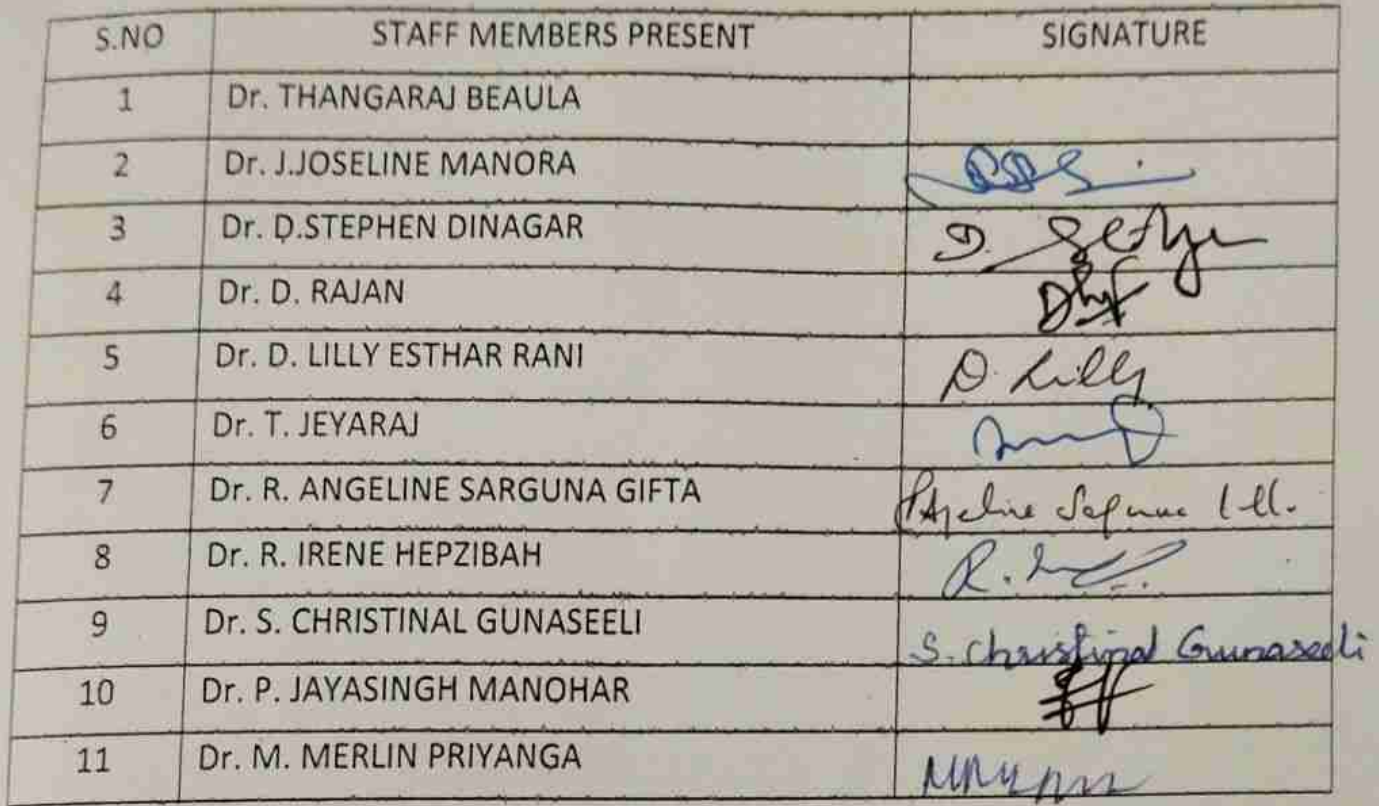 S.NO STAFF MEMBERS PRESENT SIGNATURE
1 Dr. THANGARAJ BEAULA
2 Dr. J.JOSELINE MANORA
3 Dr. D.STEPHEN DINAGAR D.
4 Dr. D. RAJAN
5 Dr. D. LILLY ESTHAR RANI D. Lilly
6 Dr. T. JEYARAJ
7 Dr. R. ANGELINE SARGUNA GIFTA
8 Dr. R. IRENE HEPZIBAH R.
9 Dr. S. CHRISTINAL GUNASEELI S. Christinal Gunaseeli
10 Dr. P. JAYASINGH MANOHAR
11 Dr. M. MERLIN PRIYANGA